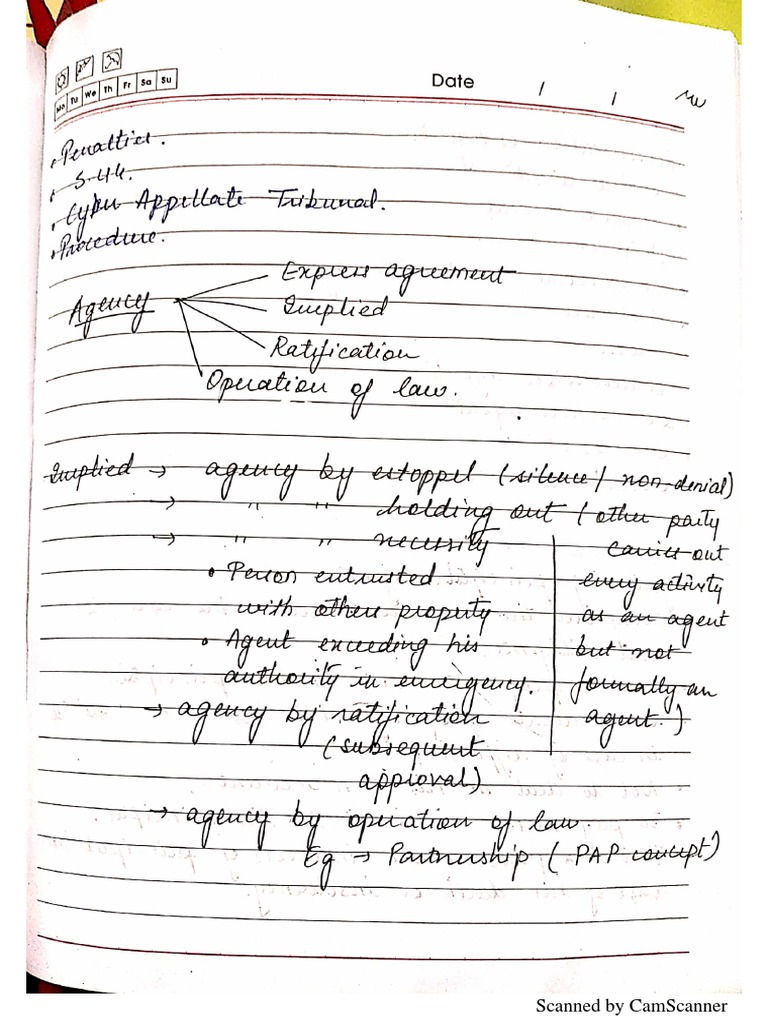 Mo Tu We Th Fr Sa Su
Date / /
• Penalties.
• S-44.
• Cyber Appellate Tribunal.
• Procedure.
Agency
Express agreement
Implied
Ratification
Operation of law.
Implied → agency by estoppel (silence / non-denial)
→ " " holding out (other party
carries out
every activity
as an agent
but not
formally an
agent.)
→ " " necessity
• Person entrusted
with others property
• Agent exceeding his
authority in emergency.
→ agency by ratification
(subsequent
approval).
→ agency by operation of law.
Eg → Partnership ( PAP concept)
Scanned by CamScanner